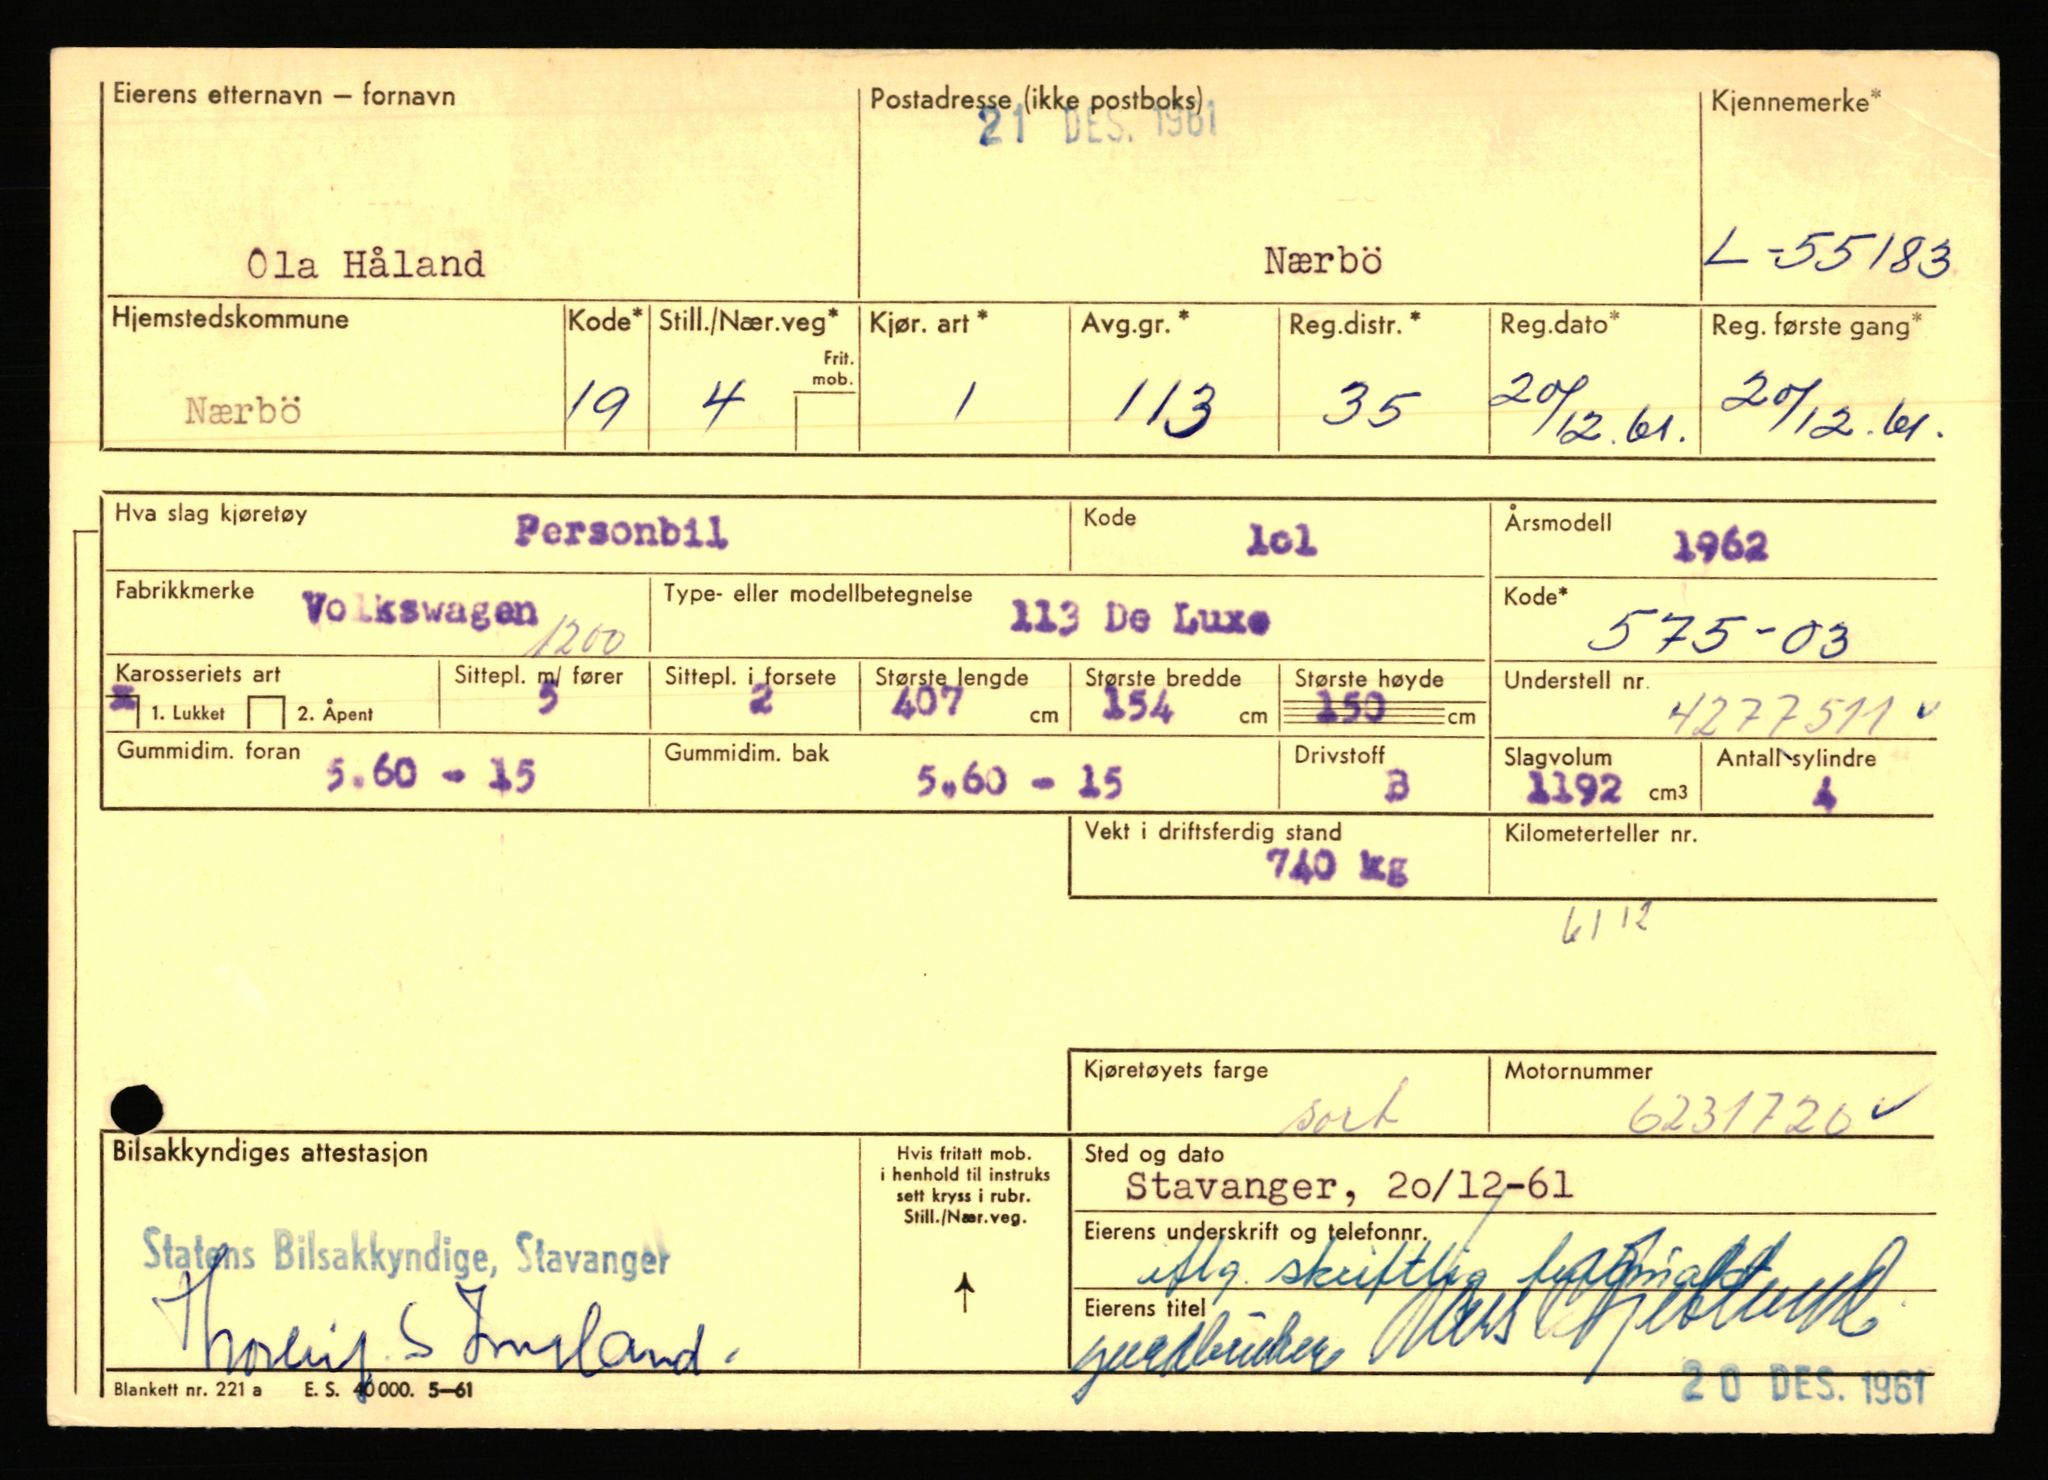 Eierens etternavn – fornavn
Postadresse (ikke postboks)
Kjennemerke*
21 DES. 1961
Ola Håland
Nærbö
L-55183
Hjemstedskommune
Kode*
Still./Nær.veg*
Frit. mob.
Kjør. art*
Avg.gr.*
Reg.distr.*
Reg.dato*
Reg. første gang*
Nærbö
19
4
1
113
35
20/12.61.
20/12.61.
Hva slag kjøretøy
Personbil
Kode
1o1
Årsmodell
1962
Fabrikkmerke
Volkswagen
1200
Type- eller modellbetegnelse
113 De Luxe
Kode*
575-03
Karosseriets art
x 1. Lukket 2. Åpent
Sittepl. m/ fører
5
Sittepl. i forsete
2
Største lengde
407 cm
Største bredde
154 cm
Største høyde
150 cm
Understell nr.
4277511 ✓
Gummidim. foran
5.60 - 15
Gummidim. bak
5.60 - 15
Drivstoff
B
Slagvolum
1192 cm3
Antall sylindre
4
Vekt i driftsferdig stand
740 kg
Kilometerteller nr.
61 12
Kjøretøyets farge
sort
Motornummer
6231720 ✓
Bilsakkyndiges attestasjon
Hvis fritatt mob.
i henhold til instruks
sett kryss i rubr.
Still./Nær.veg.
Sted og dato
Stavanger, 2o/12-61
Statens Bilsakkyndige, Stavanger
Eierens underskrift og telefonnr.
iflg. skriftlig
Eierens titel
gardbruker
20 DES. 1961
Blankett nr. 221 a E. S. 40 000. 5–61